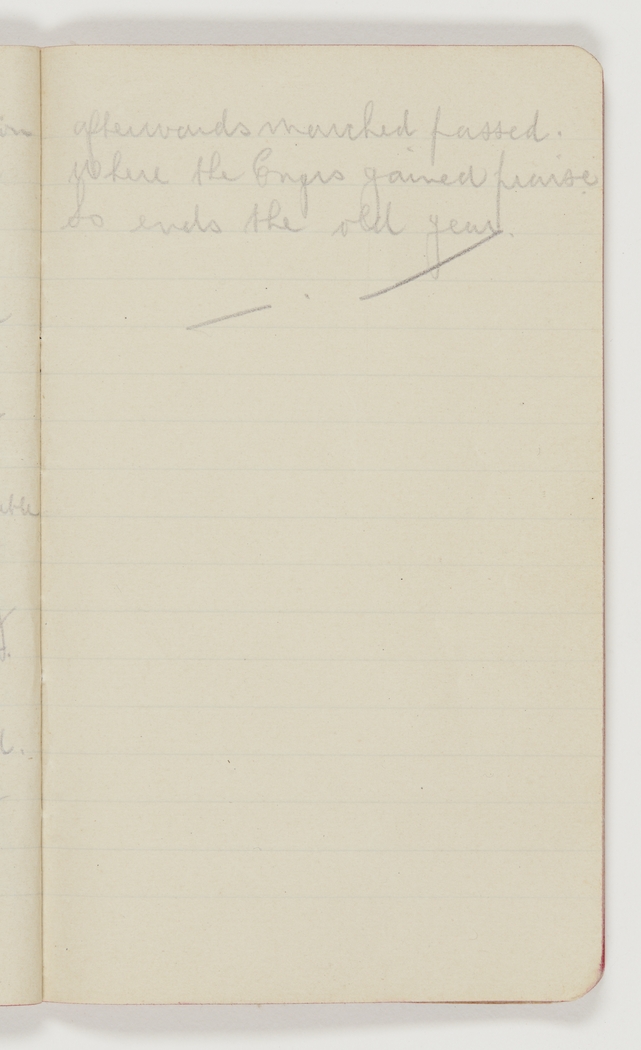 afterwards marched passed.
where the Engrs gained praise.
So ends the old year.